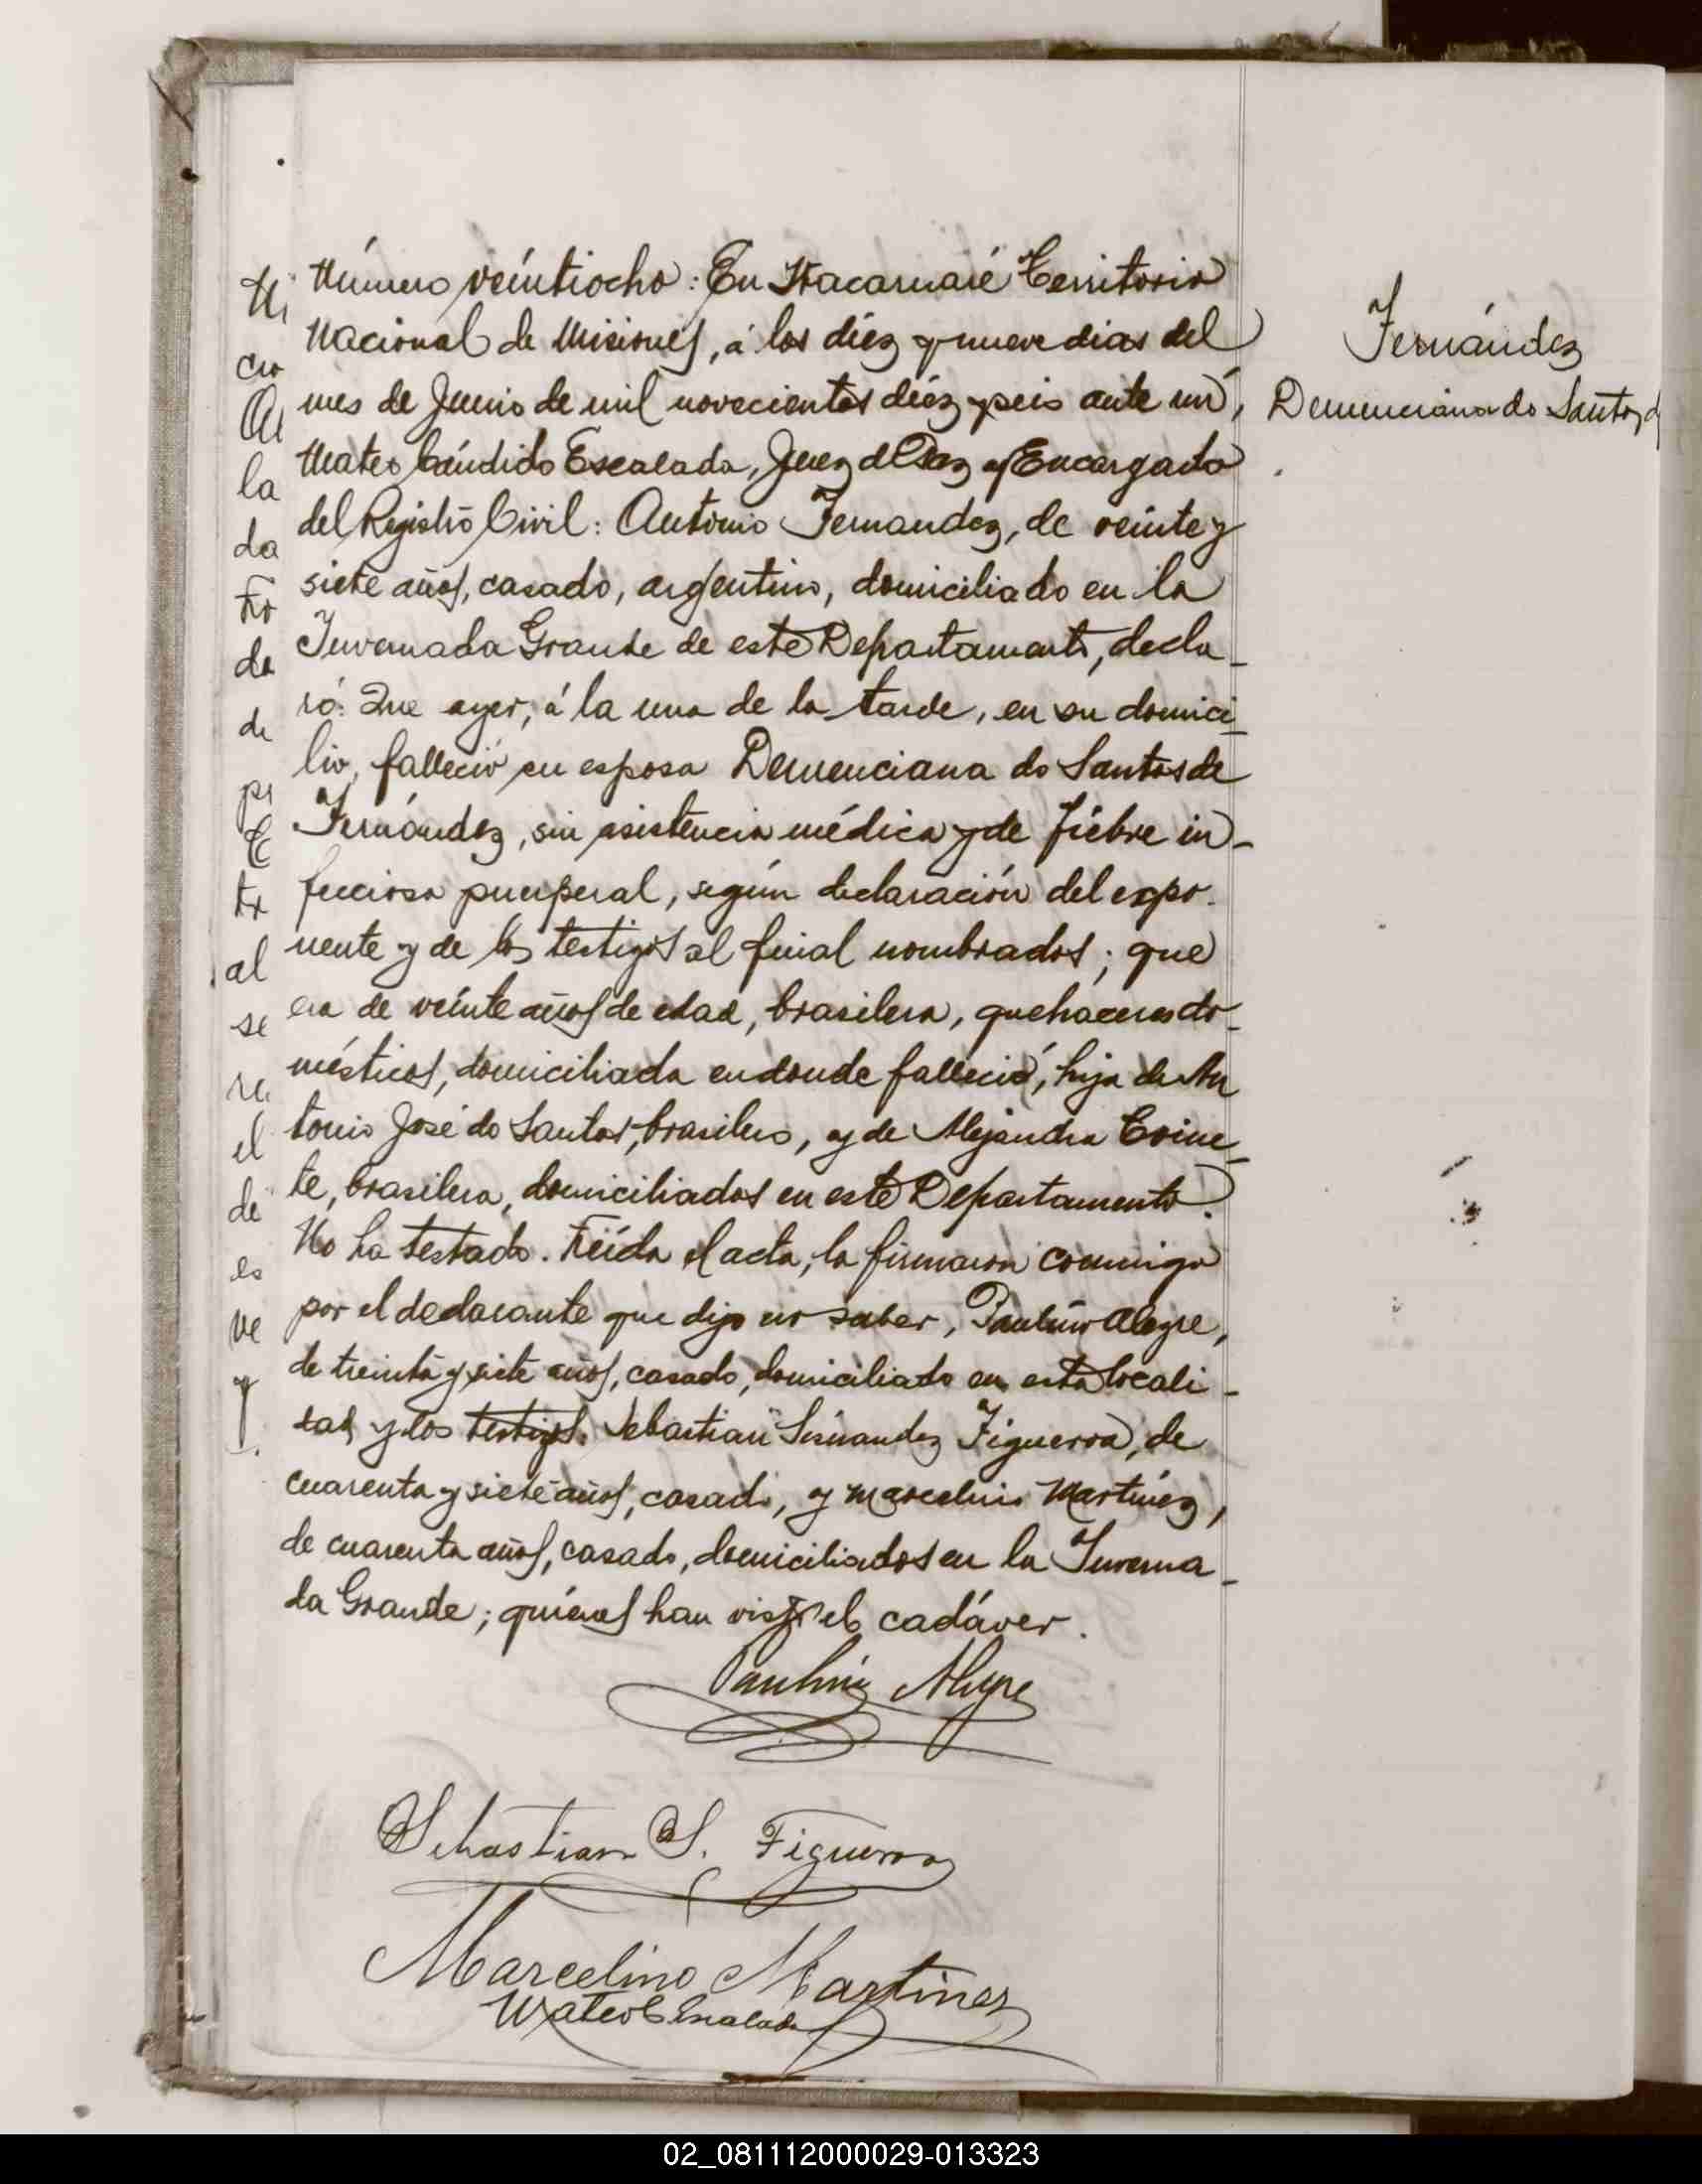 Número veintiocho: En Itacaruaré Territorio
Nacional de Misiones, á los diéz y nueve dias del
mes de Junio de mil novecientos diéz y seis ante mí,
Mateo Cándido Escalada, Juez de Paz y Encargado
del Registro Civil: Antonio Fernandez, de veinte y
siete años, casado, argentino, domiciliado en la
Invernada Grande de este Departamento, decla-
ró: Que ayer, á la una de la tarde, en su domici-
lio, falleció su esposa Demenciana do Santos de
Fernández, sin asistencia médica y de fiébre in-
fecciosa puerperal, según declaración del expo-
nente y de los testigos al final nombrados; que
era de veinte años de edad, brasilera, quehaceres do-
mésticos, domiciliada en donde falleció, hija de An
tonio José do Santos, brasilero, y de Alejandra
te, brasilera, domiciliados en este Departamento.
No ha testado. Leída el acta, la firmaron conmigo
por el declarante que dijo no saber, Paulino Alegre,
de treinta y siete años, casado, domiciliado en esta locali-
dad y los testigos. Sebastian Fernandez Figueroa, de
cuarenta y siete años, casado, y Marcelino Martínez,
de cuarenta años, casado, domiciliados en la Inverna-
da Grande; quiénes han visto el cadáver.
Paulino Alegre
Sebastian S. Figueroa
Marcelino Martinez
Mateo C Escalada
Fernández
Demenciana do Santos d
la
da
de
al
se
el
de
es
ve
y
02_081112000029-013323